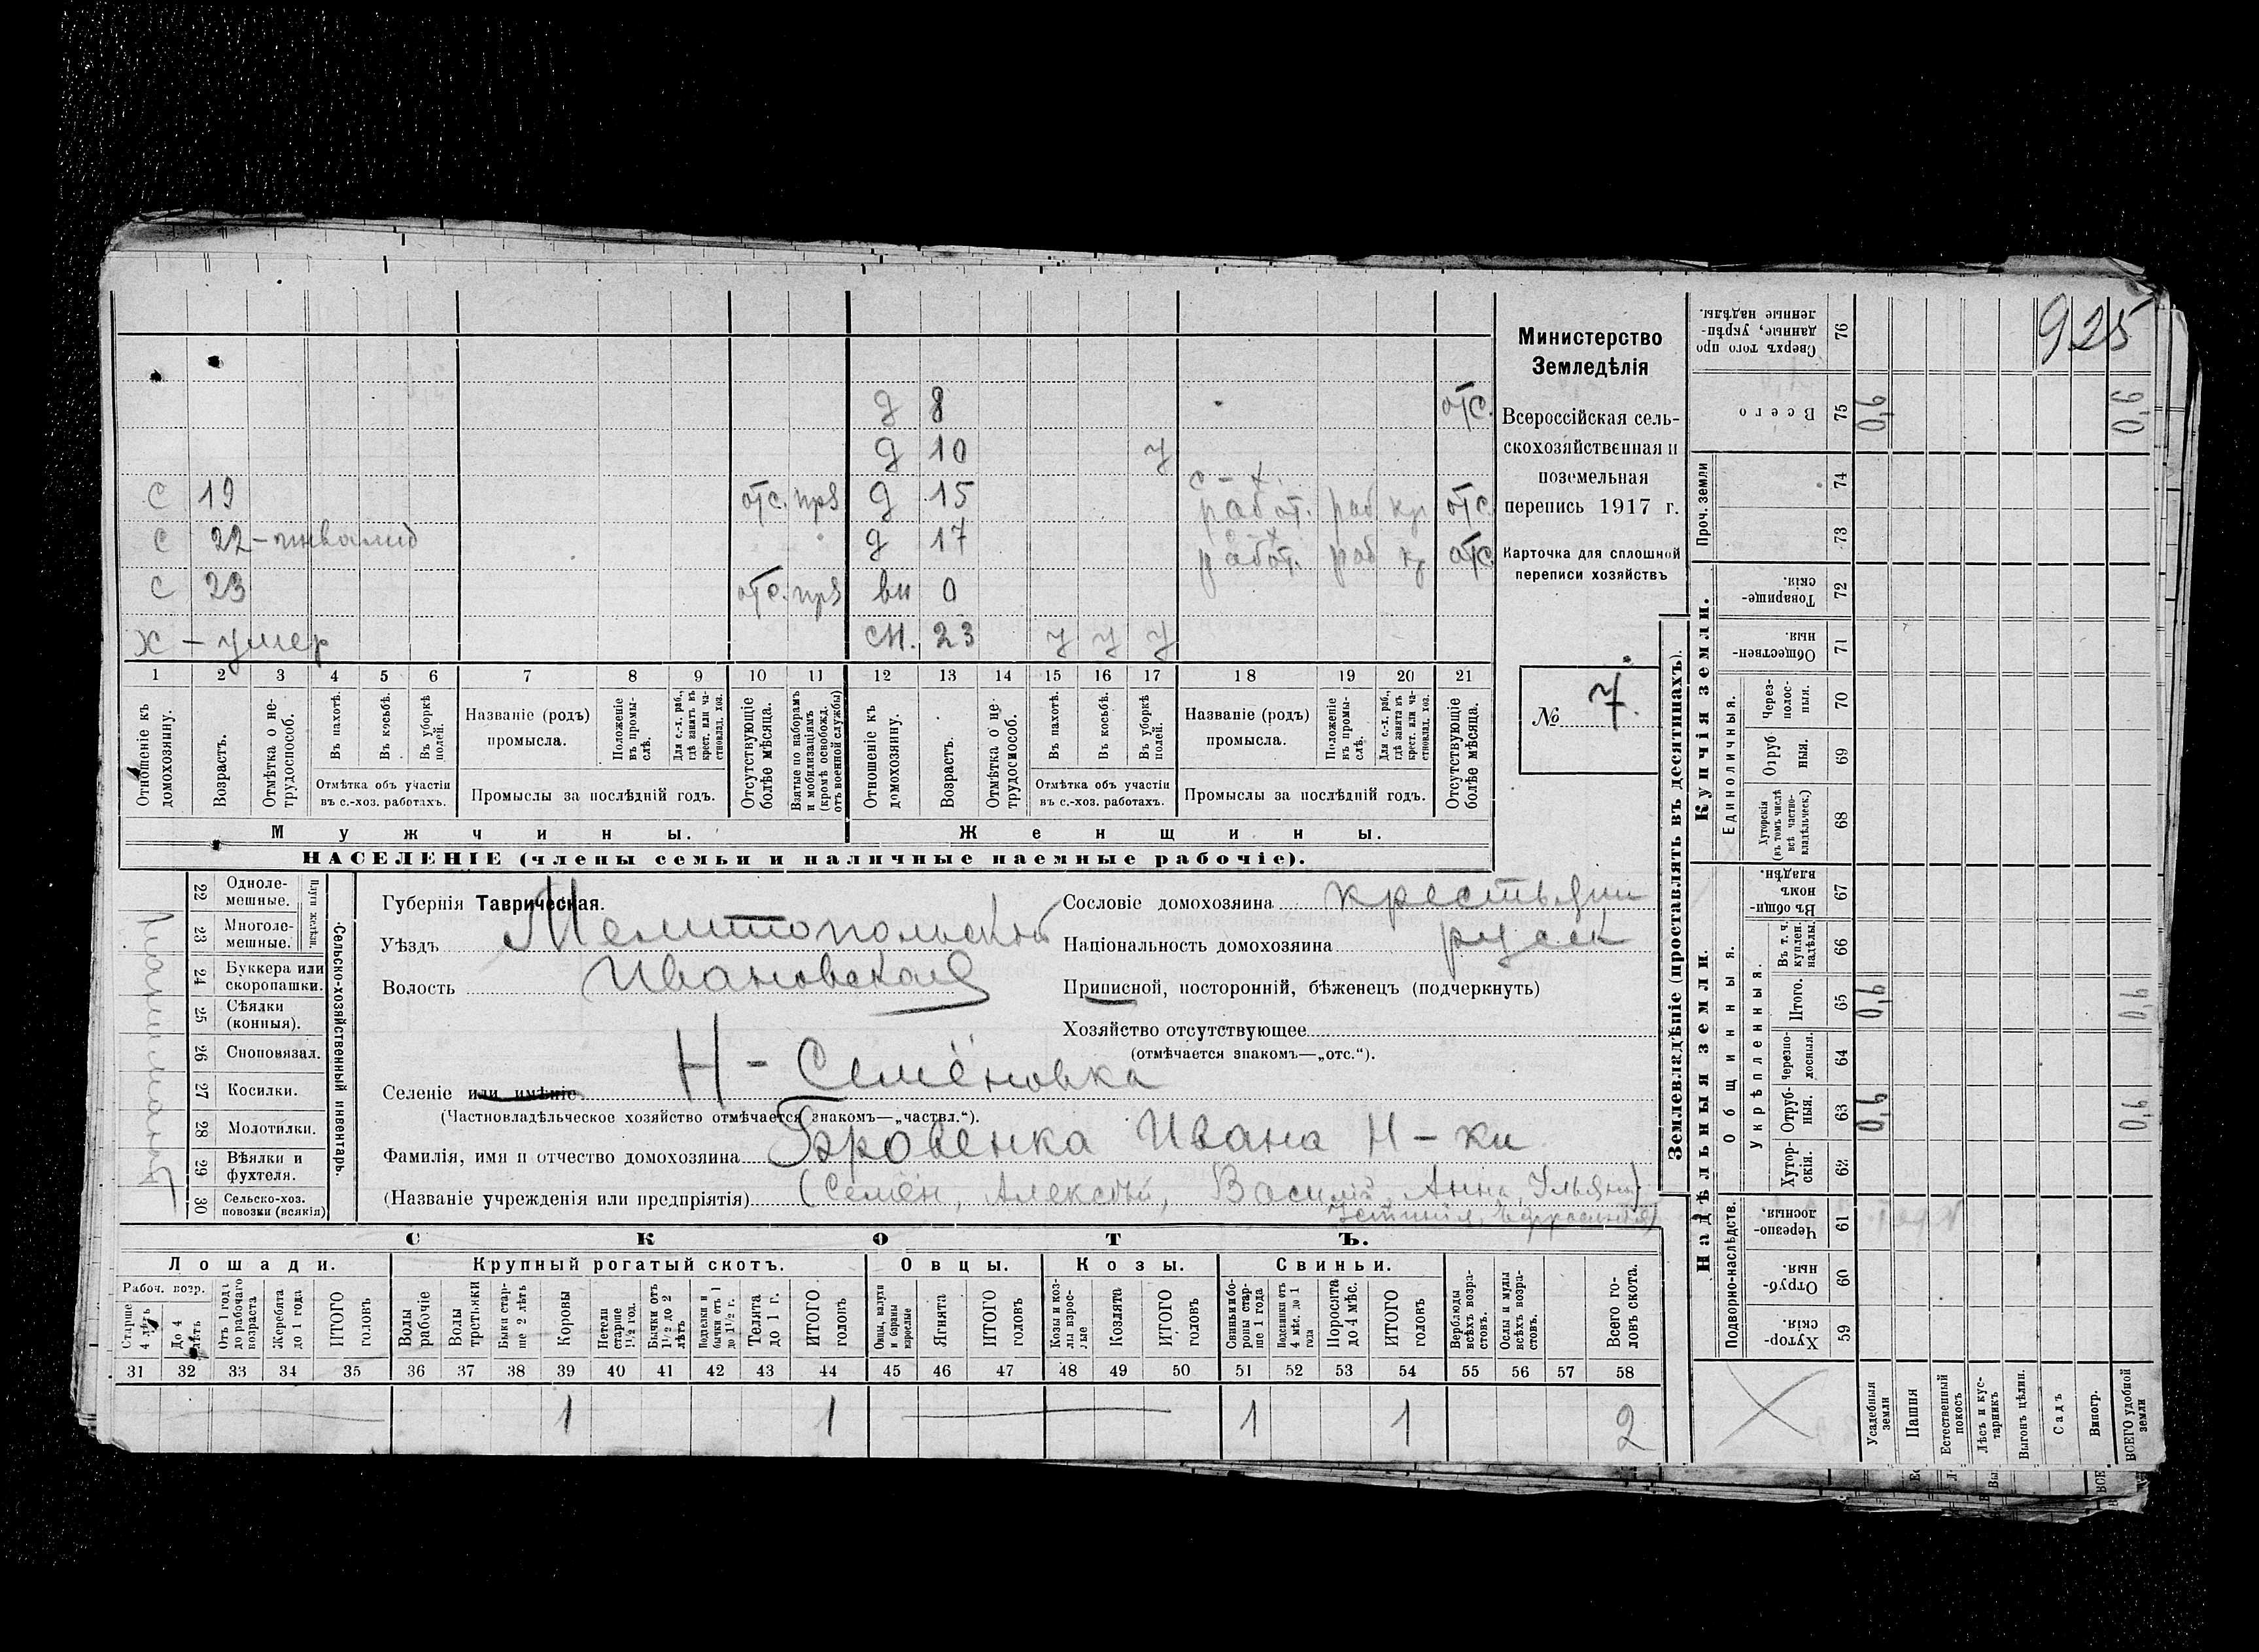 925
Министерство
Земледѣлія
Всероссійская сель-
скохозяйственная и
поземельная
перепись 1917 г.
Карточка для сплошной
переписи хозяйствъ
№ 7.
д 8 отс.
д 10 у
с 19 отс. прз д 15 с-х. работ. раб кр отс
с 22 - инвалид д 17 с-х работ. раб кр отс
с 23 отс. прз вн 0
х - умер сн. 23 у у у
1 2 3 4 5 6 7 8 9 10 11 12 13 14 15 16 17 18 19 20 21
Отношеніе къ домохозяину.
Возрастъ.
Отмѣтка о не-трудоспособ.
Въ пахотѣ.
Въ косьбѣ.
Въ уборкѣ полей.
Отмѣтка объ участіи
въ с.-хоз. работахъ.
Названіе (родъ)
промысла.
Положеніе въ промы-слѣ.
Для с.-х. раб., гдѣ занятъ въ крест. или ча-стновлад. хоз.
Промыслы за послѣдній годъ.
Отсутствующіе болѣе мѣсяца.
Взятые по наборамъ и мобилизаціямъ (кромѣ освобожд. отъ военной службы)
Отношеніе къ домохозяину.
Возрастъ.
Отмѣтка о не-трудоспособ.
Въ пахотѣ.
Въ косьбѣ.
Въ уборкѣ полей.
Отмѣтка объ участіи
въ с.-хоз. работахъ.
Названіе (родъ)
промысла.
Положеніе въ промы-слѣ.
Для с.-х. раб., гдѣ занята въ крест. или ча-стновлад. хоз.
Промыслы за послѣдній годъ.
Отсутствующіе болѣе мѣсяца.
Мужчины. Женщины.
НАСЕЛЕНІЕ (члены семьи и наличные наемные рабочіе).
Сельско-хозяйственный инвентарь.
Плуги желѣзн.
22 Одноле-мешные.
23 Многоле-мешные.
24 Буккера или скоропашки.
25 Сѣялки (конныя).
26 Сноповязал.
27 Косилки.
28 Молотилки.
29 Вѣялки и фухтеля.
30 Сельско-хоз. повозки (всякія)
Губернія Таврическая.
Уѣздъ Мелитопольскій
Волость Ивановская
Селеніе или имѣніе Н-Семёновка
(Частновладѣльческое хозяйство отмѣчается знакомъ—„частвл.“).
Фамилія, имя и отчество домохозяина Бровенка Ивана Н-ки
(Названіе учрежденія или предпріятія) (Семён, Алексѣй, Василій, Анна, Ульяна,
Сословіе домохозяина крестьянин
Національность домохозяина русск
Приписной, посторонній, бѣженецъ (подчеркнуть)
Хозяйство отсутствующее
(отмѣчается знакомъ—„отс.“).
СКОТЪ.
Лошади. Крупный рогатый скотъ. Овцы. Козы. Свиньи.
Рабоч. возр.
Старше 4 лѣтъ
До 4 лѣтъ
Отъ 1 года до рабочаго возраста
Жеребята до 1 года
ИТОГО головъ
Волы рабочіе
Волы третьяки
Быки стар-ше 2 лѣтъ
Коровы
Нетели старше 1½ год.
Бычки отъ 1½ до 2 лѣтъ
Подтелки и бычки отъ 1 до 1½ г.
Телята до 1 г.
ИТОГО головъ
Овцы, валухи и бараны взрослые
Ягнята
ИТОГО головъ
Козы и коз-лы взрос-лые
Козлята
ИТОГО головъ
Свиньи и бо-ровы стар-ше 1 года
Подсвинки отъ 4 мѣс. до 1 года
Поросята до 4 мѣс.
ИТОГО головъ
Верблюды всѣхъ возра-стовъ.
Ослы и мулы всѣхъ возра-стовъ.
Всего го-ловъ скота.
31 32 33 34 35 36 37 38 39 40 41 42 43 44 45 46 47 48 49 50 51 52 53 54 55 56 57 58
1 1 1 1 2
Землевладѣніе (проставлять въ десятинахъ).
Купчія земли.
Надѣльныя земли.
Сверхъ того про данные, укрѣп-ленные надѣлы. 76
Всего 75 0,6 0,6
Проч. земли 74
73
Товарище-скія. 72
Обществен-ныя. 71
Единоличныя.
Через-полос-ныя. 70
Отруб-ныя. 69
Хуторскія (въ томъ числѣ всѣ частно-владѣльческ.) 68
Общинныя.
Въ общи-номъ владѣн. 67
Укрѣпленныя.
Въ т. ч. куплен. надѣлы. 66
Итого. 65 0,6 0,6
Черезпо-лосныя. 64
Отруб-ныя. 63 0,6 0,6
Хутор-скія. 62
Подворно-наслѣдств.
Черезпо-лосныя. 61
Отруб-ныя. 60
Хутор-скія. 59
Усадебныя земли
Пашня
Естественный покосъ
Лѣсъ и кус-тарникъ
Выгонъ цѣлин.
Садъ
Виногр.
ВСЕГО удобной земли